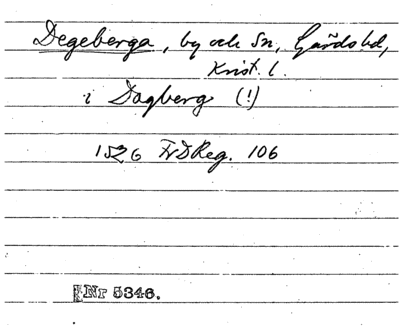 Degeberga, by och Sn, Gärds hd,
Krist. l.
i Dagberg (!)
1526 FrDReg. 106
Nr 5346.